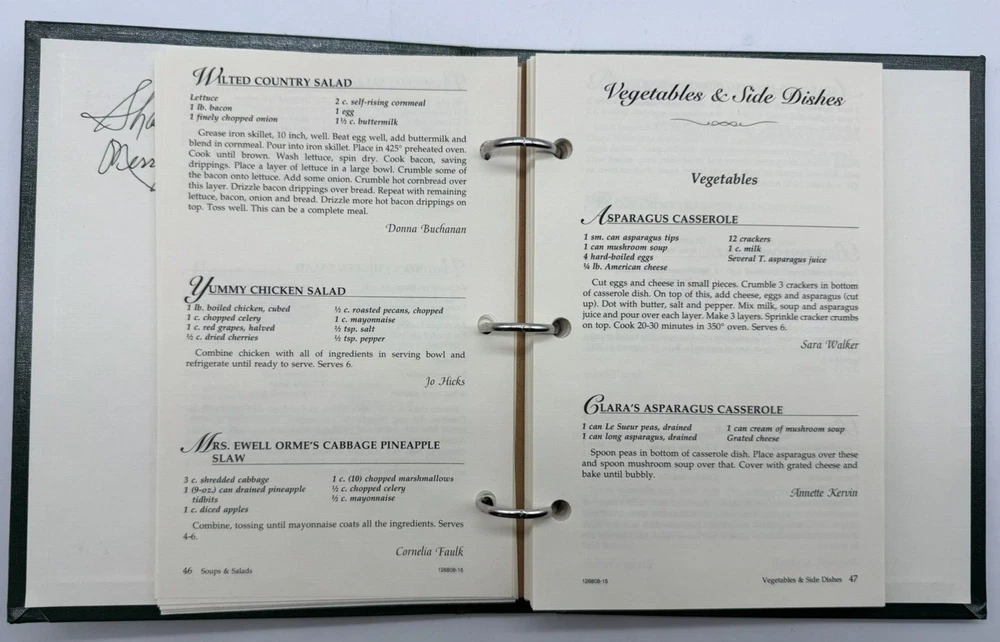 Sha
WILTED COUNTRY SALAD
Lettuce
1 lb. bacon
1 finely chopped onion
2 c. self-rising cornmeal
1 egg
1½ c. buttermilk
Grease iron skillet, 10 inch, well. Beat egg well, add buttermilk and
blend in cornmeal. Pour into iron skillet. Place in 425° preheated oven.
Cook until brown. Wash lettuce, spin dry. Cook bacon, saving
drippings. Place a layer of lettuce in a large bowl. Crumble some of
the bacon onto lettuce. Add some onion. Crumble hot cornbread over
this layer. Drizzle bacon drippings over bread. Repeat with remaining
lettuce, bacon, onion and bread. Drizzle more hot bacon drippings on
top. Toss well. This can be a complete meal.
Donna Buchanan
YUMMY CHICKEN SALAD
1 lb. boiled chicken, cubed
1 c. chopped celery
1 c. red grapes, halved
½ c. dried cherries
½ c. roasted pecans, chopped
1 c. mayonnaise
½ tsp. salt
½ tsp. pepper
Combine chicken with all of ingredients in serving bowl and
refrigerate until ready to serve. Serves 6.
Jo Hicks
MRS. EWELL ORME'S CABBAGE PINEAPPLE
SLAW
3 c. shredded cabbage
1 (9-oz.) can drained pineapple
tidbits
1 c. diced apples
1 c. (10) chopped marshmallows
½ c. chopped celery
½ c. mayonnaise
Combine, tossing until mayonnaise coats all the ingredients. Serves
4-6.
Cornelia Faulk
46 Soups & Salads
126808-15
Vegetables & Side Dishes
Vegetables
ASPARAGUS CASSEROLE
1 sm. can asparagus tips
1 can mushroom soup
4 hard-boiled eggs
¼ lb. American cheese
12 crackers
1 c. milk
Several T. asparagus juice
Cut eggs and cheese in small pieces. Crumble 3 crackers in bottom
of casserole dish. On top of this, add cheese, eggs and asparagus (cut
up). Dot with butter, salt and pepper. Mix milk, soup and asparagus
juice and pour over each layer. Make 3 layers. Sprinkle cracker crumbs
on top. Cook 20-30 minutes in 350° oven. Serves 6.
Sara Walker
CLARA'S ASPARAGUS CASSEROLE
1 can Le Sueur peas, drained
1 can long asparagus, drained
1 can cream of mushroom soup
Grated cheese
Spoon peas in bottom of casserole dish. Place asparagus over these
and spoon mushroom soup over that. Cover with grated cheese and
bake until bubbly.
Annette Kervin
126808-15
Vegetables & Side Dishes 47